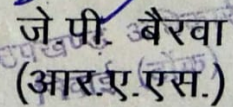 जे.पी. बैरवा
(आर.ए.एस.)